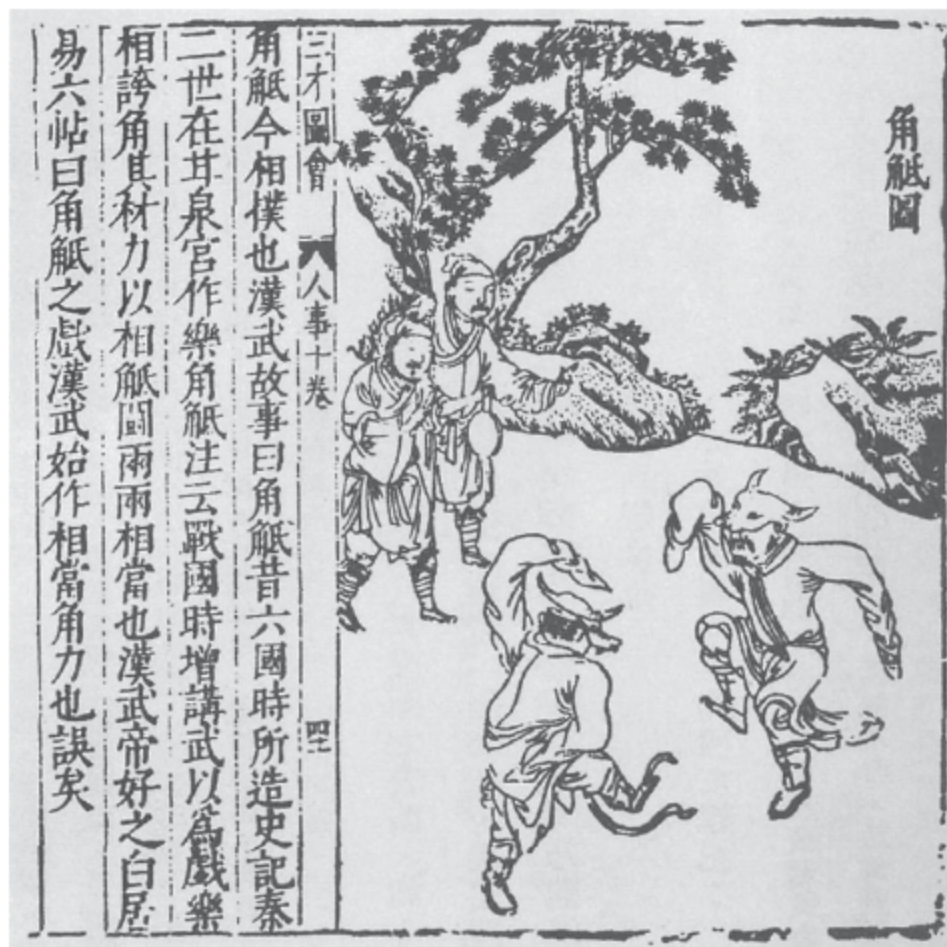 角觝圖
三才圖會 人事十卷 四十
角觝今相撲也漢武故事曰角觝昔六國時所造史記秦
二世在甘泉宮作樂角觝注云戰國時增講武以爲戲樂
相誇角其材力以相觝鬭兩兩相當也漢武帝好之白居
易六帖曰角觝之戲漢武始作相當角力也誤矣